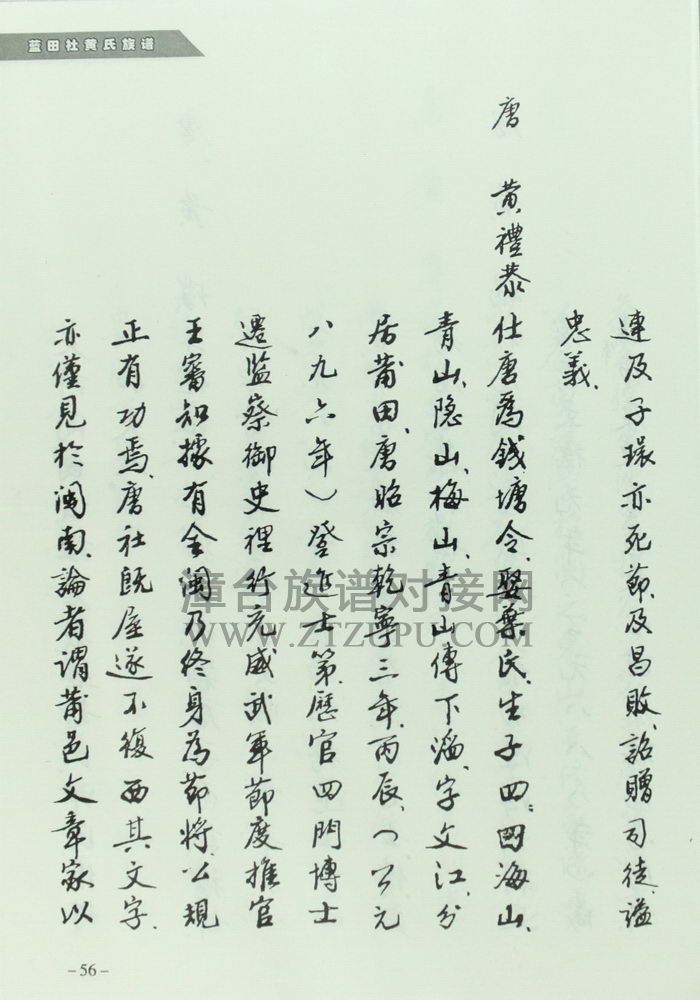 蓝田社黄氏族谱
連及子環亦死節、及昌敗、詔贈司徒、謚
忠義、
唐 黄禮恭仕唐為錢塘令、娶葉氏、生子四：四海山、
青山、隐山、梅山、青山傳下滔、字文江、分
居莆田、唐昭宗乾寧三年、丙辰、(公元
八九六年)登進士第、歷官四門博士
遷監察御史裡行充威武軍節度推官
王審知據有全閩乃終身為節將、公規
正有功焉、唐社既屋遂不復西其文字、
亦僅見於閩南、論者謂莆邑文章家以
漳台族谱对接网
WWW.ZTZUPU.COM
-56-